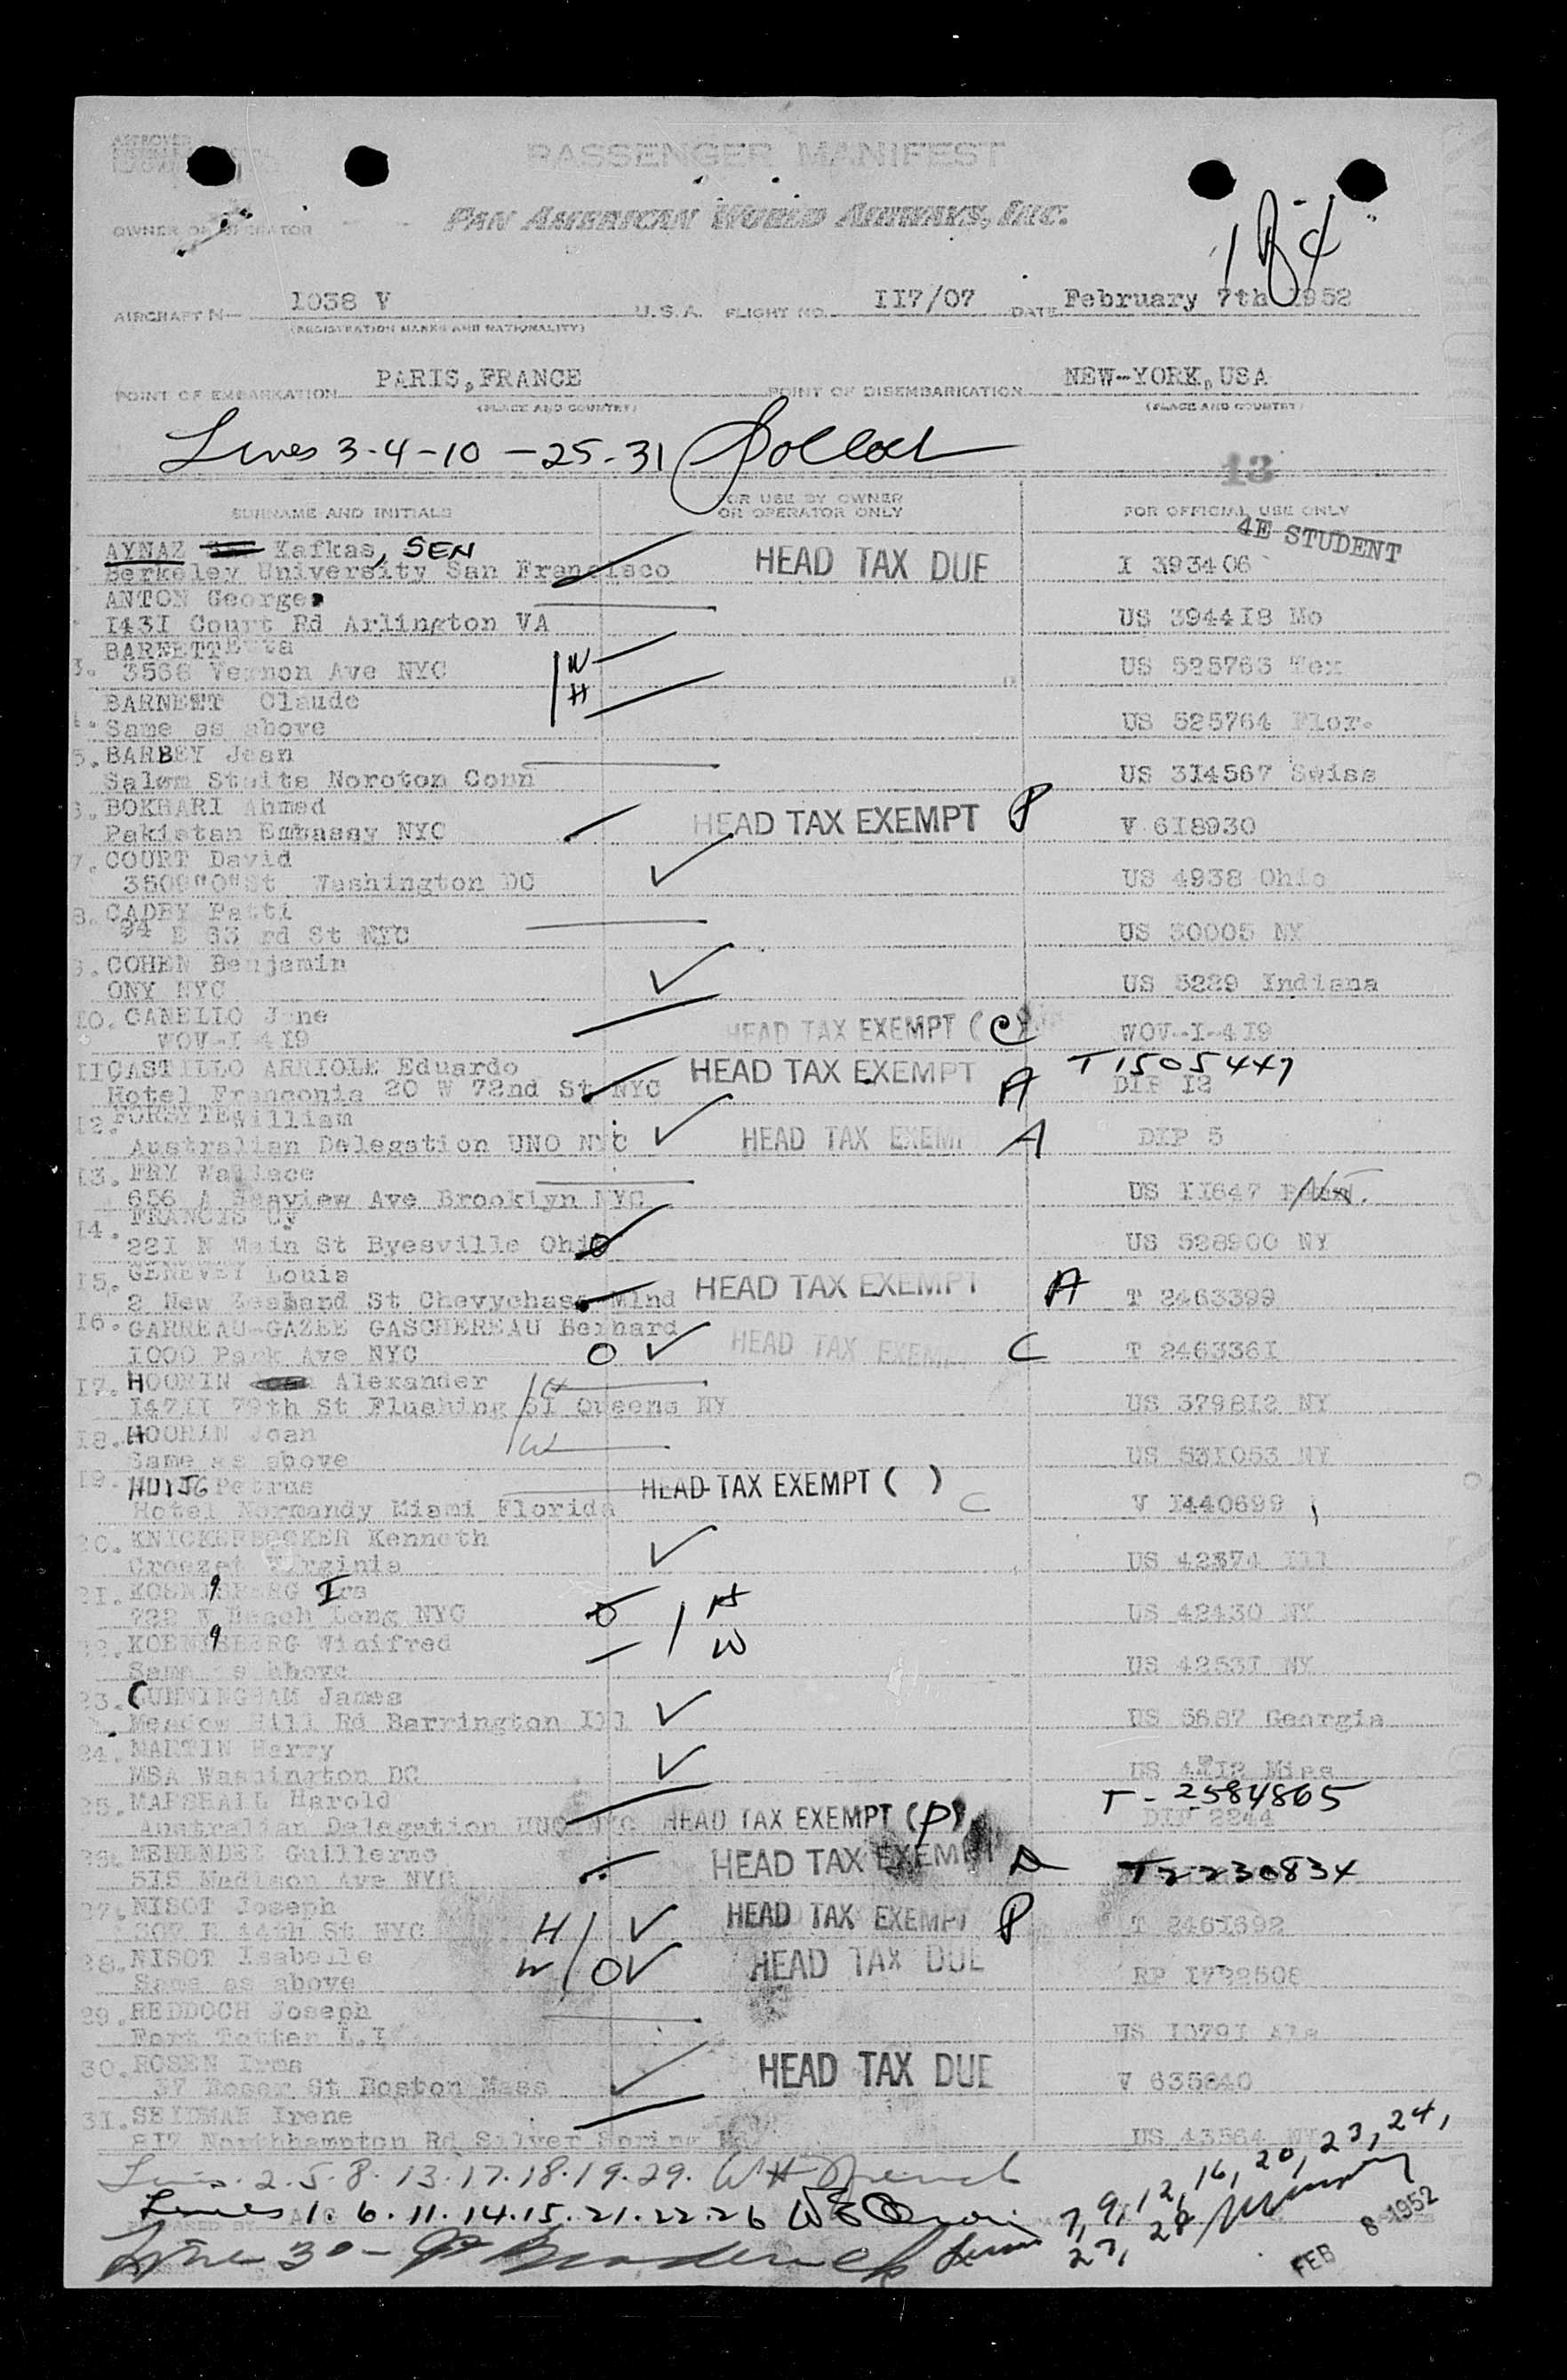 PASSENGER MANIFEST
PAN AMERICAN WORLD AIRWAYS, INC.
OWNER OR OPERATOR
1 of 4
AIRCRAFT N— 1038 V U.S.A. FLIGHT NO. II7/07 DATE February 7th 1952
(REGISTRATION MARKS AND NATIONALITY)
POINT OF EMBARKATION PARIS, FRANCE POINT OF DISEMBARKATION NEW-YORK, USA
(PLACE AND COUNTRY) (PLACE AND COUNTRY)
Lines 3-4-10-25-31
13
SURNAME AND INITIALS FOR USE BY OWNER OR OPERATOR ONLY FOR OFFICIAL USE ONLY
4E STUDENT
AYNAZ Kafkas, SEN HEAD TAX DUE I 393406
Berkeley University San Francisco
ANTON George
I43I Court Rd Arlington VA US 3944I8 Mo
BARNETT Etta
3. 3568 Vernon Ave NYC W US 525763 Tex
BARNETT Claude H
4. Same as above US 525764 Flor.
5. BARBEY Jean
Salem Noroton Conn US 3I4567 Swiss
6. BOKHARI Ahmed HEAD TAX EXEMPT P
Pakistan Embassy NYC V 6I8930
7. COURT David
3509"O"St Washington DC US 4938 Ohio
8. CADEY Patti
34 E 63 rd St NYC US 30005 NY
9. COHEN Benjamin
ONY NYC US 5229 Indiana
IO. CANELLO Jane HEAD TAX EXEMPT (C)
WOV-I 4I9 WOV-I-4I9
II CASTILLO ARRIOLE Eduardo HEAD TAX EXEMPT A T1505447
Hotel Franconia 20 W 72nd St NYC DIP I2
I2. FORSYTE William HEAD TAX EXEMPT A
Australian Delegation UNO NYC DIP 5
I3. FRY Wallace
656 A Seaview Ave Brooklyn NYC US II647
I4. FRANCIS Cy
22I N Main St Byesville Ohio US 528900 NY
I5. GENEVEY Louis HEAD TAX EXEMPT A
2 New Zealand St Chevychase Mlnd T 2463399
I6. GARREAU-GAZEE GASCHEREAU Bernard
I000 Park Ave NYC O HEAD TAX EXEMPT C T 246336I
I7. HOORIN Alexander H
I47II 79th St Flushing 5I Queens NY US 3798I2 NY
I8. HOORIN Joan W
Same as above US 53I053 NY
I9. HUYJG Petrus HEAD TAX EXEMPT ( ) C
Hotel Normandy Miami Florida V I440699
20. KNICKERBOCKER Kenneth
Crozet Virginia US 42374 Ill
2I. KOENIGSBERG Ira H
722 W Beach Long NYC US 42430 NY
22. KOENIGSBERG Winifred W
Same as above US 4253I NY
23. CUNNINGHAM James
Meadow Hill Rd Barrington Ill US 5687 Georgia
24. MARTIN Harry
MSA Washington DC US Miss
25. MARSHALL Harold HEAD TAX EXEMPT (P) T-2584865
Australian Delegation UNO NYC DIP 2244
26. MENENDEZ Guillermo HEAD TAX EXEMPT A T2230834
5I5 Madison Ave NYC
27. NISOT Joseph H HEAD TAX EXEMPT P
307 E 44th St NYC T 246I692
28. NISOT Isabelle W O HEAD TAX DUE
Same as above RP I722508
29. REDDOCH Joseph
Fort Totten L.I US I079I Ala
30. ROSEN Irma HEAD TAX DUE
St Boston Mass V 635840
3I. SEIDMAN Irene
8I7 Northhampton Rd Silver Spring US 43564 NY
Lines. 2.5.8.13.17.18.19.29. WH French
Lines 1.6.11.14.15.21.22.26
Line 30 - Lines 7, 9, 12, 16, 20, 23, 24,
27, 28
FEB 8 1952